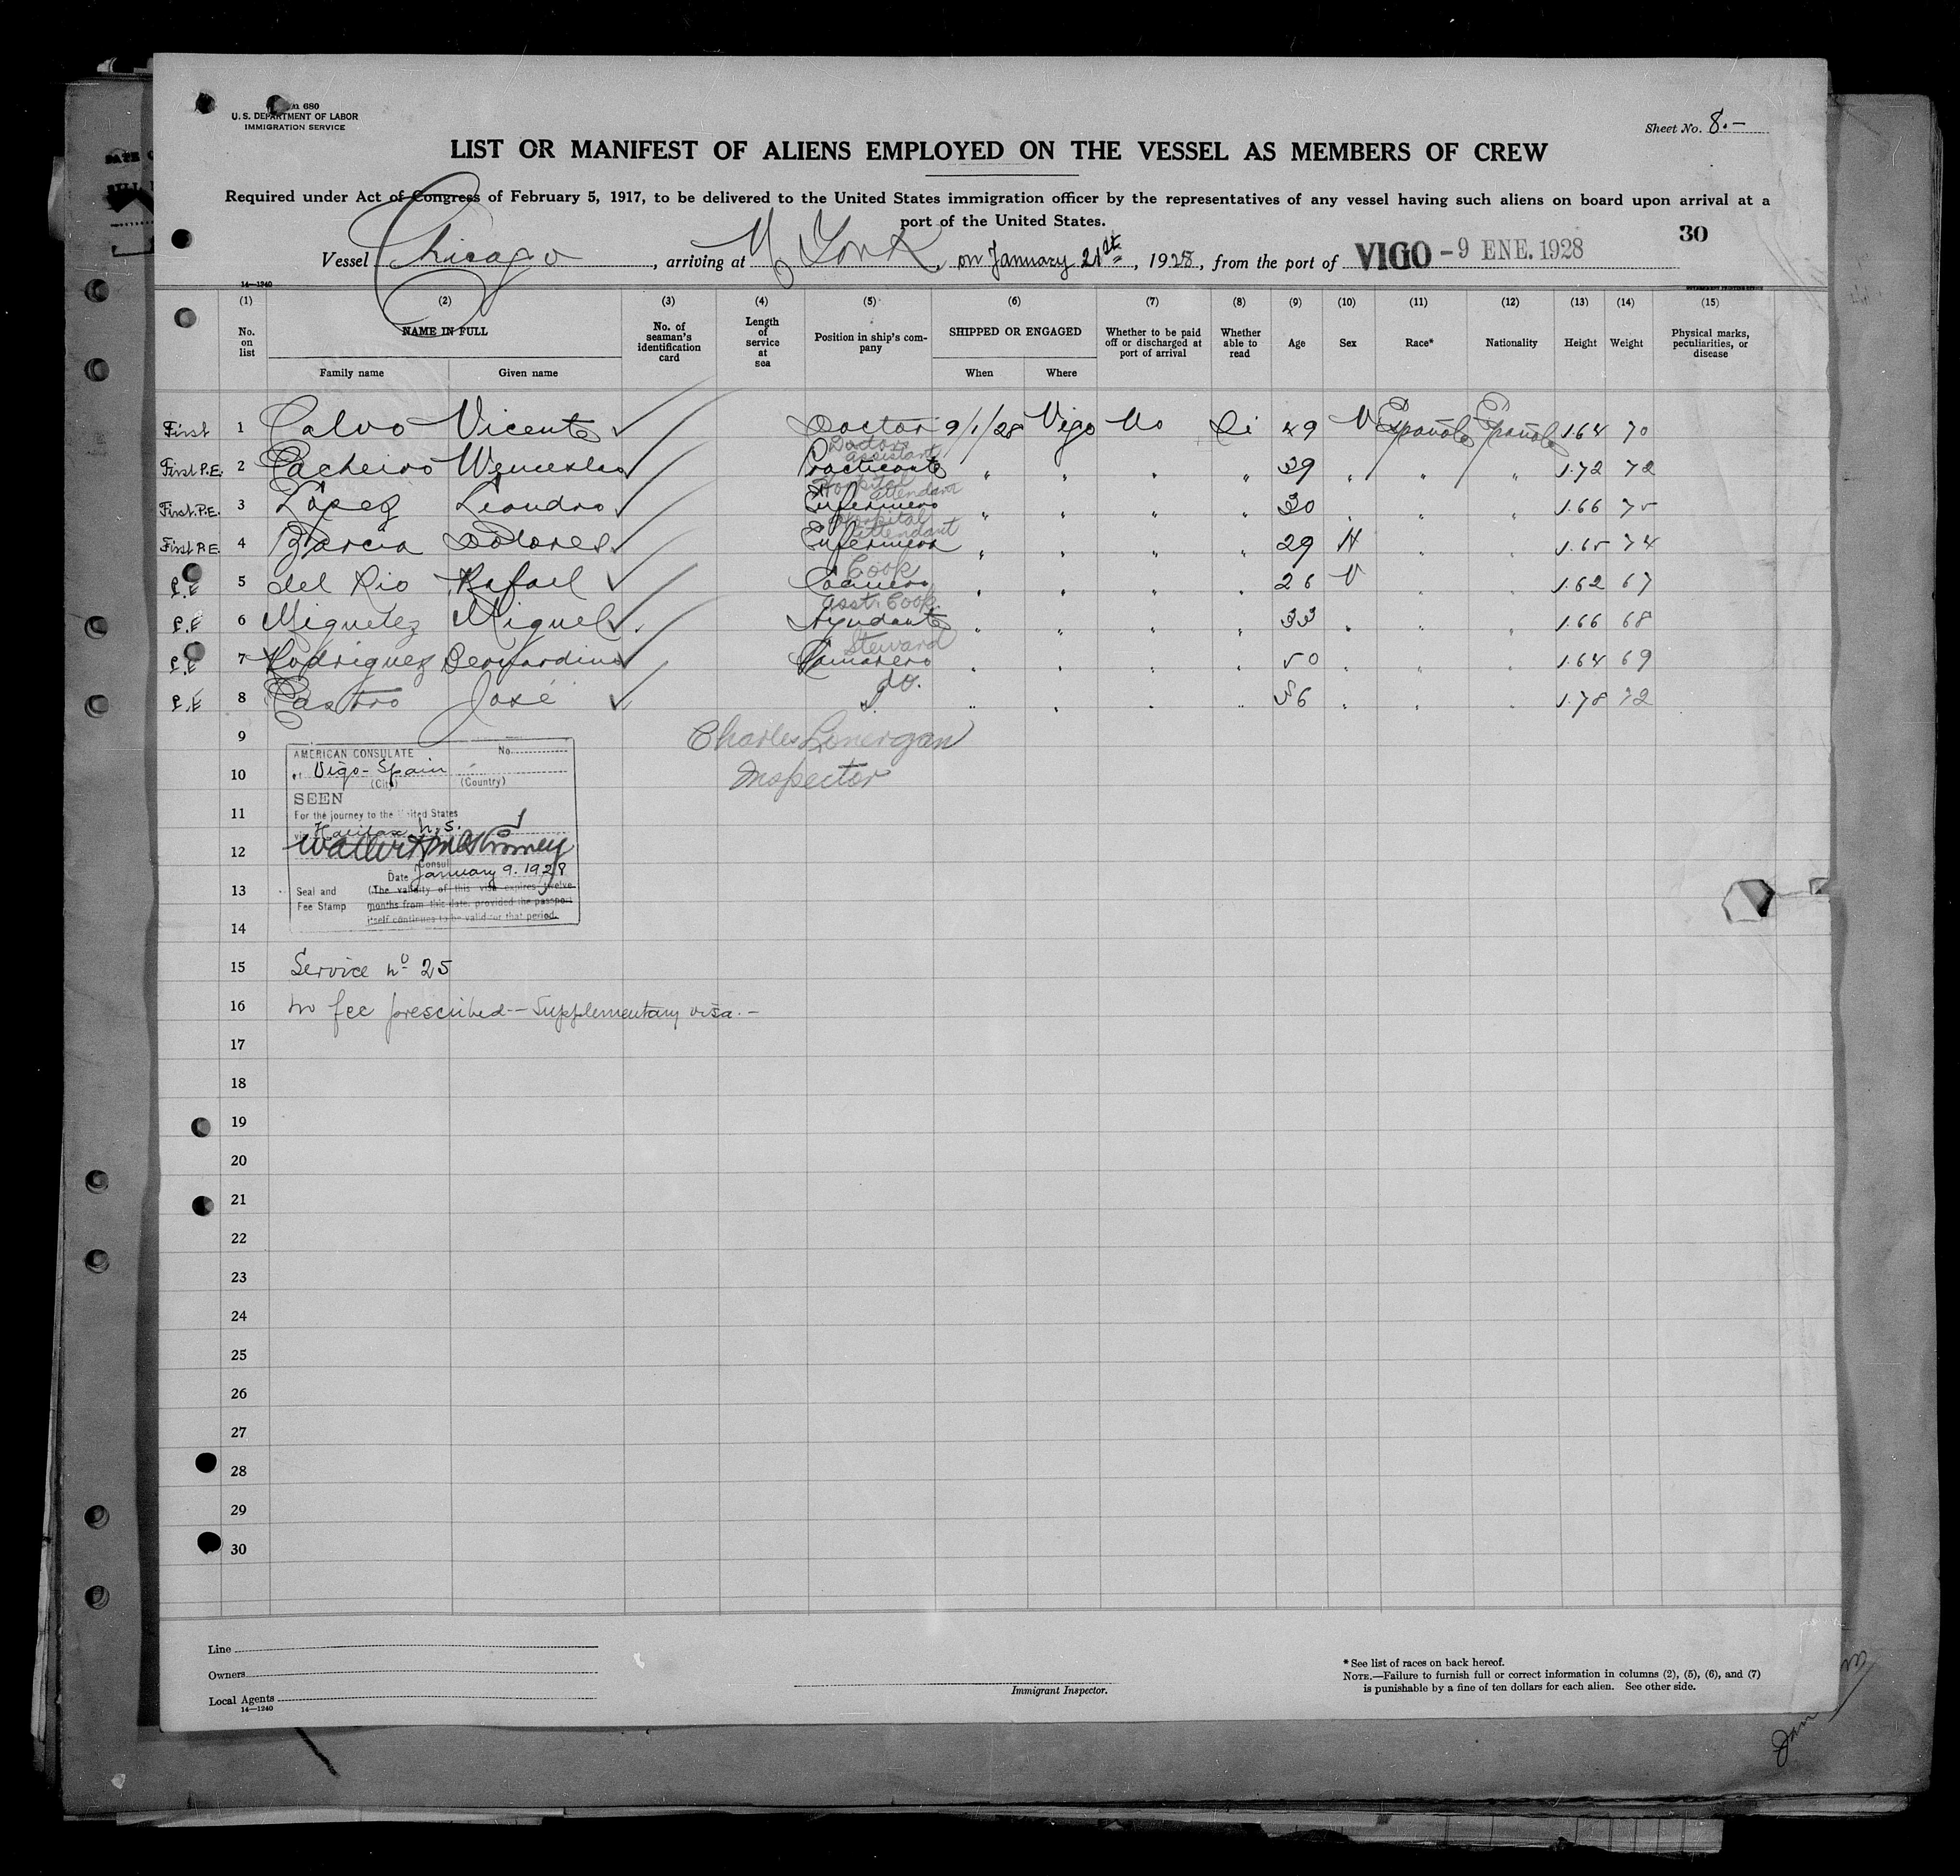 680
U. S. DEPARTMENT OF LABOR
IMMIGRATION SERVICE
Sheet No. 8.-
LIST OR MANIFEST OF ALIENS EMPLOYED ON THE VESSEL AS MEMBERS OF CREW
Required under Act of Congress of February 5, 1917, to be delivered to the United States immigration officer by the representatives of any vessel having such aliens on board upon arrival at a
port of the United States.
30
Vessel Chicago, arriving at N York, on January 21st, 1928, from the port of VIGO -9 ENE. 1928
14—1240
(1) (2) (3) (4) (5) (6) (7) (8) (9) (10) (11) (12) (13) (14) (15)
No. on list NAME IN FULL No. of seaman's identification card Length of service at sea Position in ship's company SHIPPED OR ENGAGED Whether to be paid off or discharged at port of arrival Whether able to read Age Sex Race* Nationality Height Weight Physical marks, peculiarities, or disease
Family name Given name When Where
First 1 Calvo Vicente Doctor 9/1/28 Vigo No Si 49 V Española Española 1.64 70
Doctors assistant
First P.E. 2 Pacheiro Wenceslao Practicante " " " " 39 " " " 1.72 72
Hospital attendant
First P.E. 3 López Leandro Enfermero " " " " 30 " " " 1.66 75
Hospital attendant
First P.E. 4 García Dolores Enfermera " " " " 29 H " " 1.65 74
Cook
P.E 5 del Rio Rafael Cocinero " " " " 26 V " " 1.62 67
asst. Cook
P.E 6 Miguelez Miguel Ayudante " " " " 33 " " " 1.66 68
Steward
P.E 7 Rodriguez Bernardino Camarero " " " " 50 " " " 1.64 69
do.
P.E 8 Castro José " " " " " 36 " " " 1.78 72
9 Charles Lonergan
10 Inspector
11
12
13
14
AMERICAN CONSULATE No.
at Vigo - Spain
(City) (Country)
SEEN
For the journey to the United States
via Halifax N.S.
Consul
Date January 9. 1928
Seal and Fee Stamp
(The validity of this visa expires twelve
months from this date, provided the passport
itself continues to be valid for that period.
15 Service nº 25
16 No fee prescribed - Supplementary visa. -
17
18
19
20
21
22
23
24
25
26
27
28
29
30
Line
Owners
Local Agents
14—1240
Immigrant Inspector.
* See list of races on back hereof.
NOTE.—Failure to furnish full or correct information in columns (2), (5), (6), and (7)
is punishable by a fine of ten dollars for each alien. See other side.
Jan